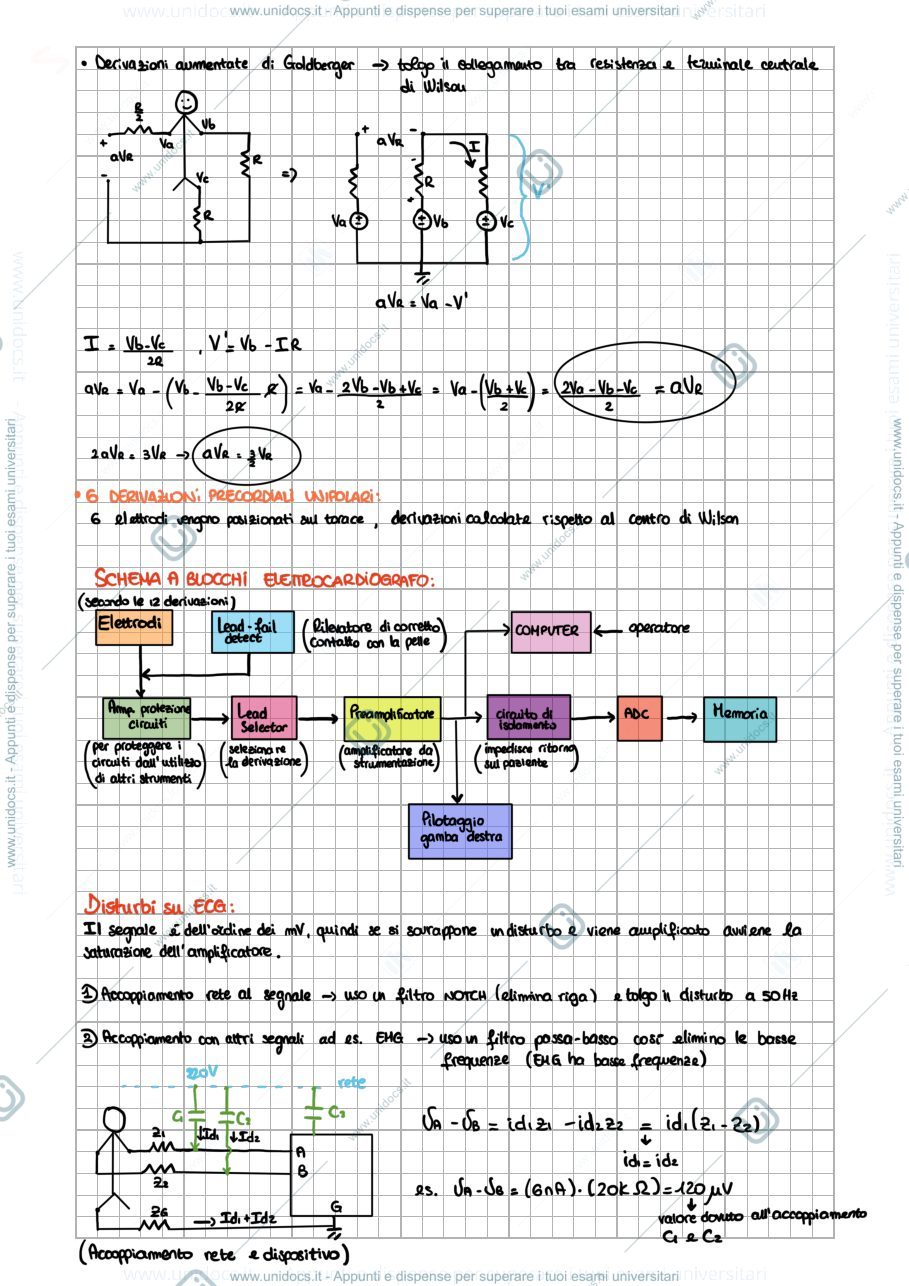 www.unidocs.it - Appunti e dispense per superare i tuoi esami universitari
• Derivazioni aumentate di Goldberger → tolgo il collegamento tra resistenza e terminale centrale
di Wilson
R/2
Va
Vb
+
aVR
-
Vc
R
R
=>
+ aVR -
I
-
R
+
Va
Vb
Vc
V'
aVR = Va - V'
I = Vb-Vc/2R , V' = Vb - IR
aVR = Va - (Vb - Vb-Vc/2R R) = Va - 2Vb-Vb+Vc/2 = Va - (Vb+Vc/2) = 2Va-Vb-Vc/2 = aVR
2aVR = 3VR → aVR = 3/2 VR
• 6 DERIVAZIONI PRECORDIALI UNIPOLARI:
6 elettrodi vengono posizionati sul torace, derivazioni calcolate rispetto al centro di Wilson
SCHEMA A BLOCCHI ELETTROCARDIOGRAFO:
(secondo le 12 derivazioni)
Elettrodi
Lead-fail
detect
(Rilevatore di corretto
contatto con la pelle)
COMPUTER
operatore
Amp. protezione
circuiti
Lead
Selector
Preamplificatore
circuito di
isolamento
ADC
Memoria
(per proteggere i
circuiti dall'utilizzo
di altri strumenti)
(selezionare
la derivazione)
(amplificatore da
strumentazione)
(impedisce ritorno
sul paziente)
Pilotaggio
gamba destra
Disturbi su ECG:
Il segnale è dell'ordine dei mV, quindi se si sovrappone un disturbo e viene amplificato avviene la
saturazione dell'amplificatore.
1) Accoppiamento rete al segnale → uso un filtro NOTCH (elimina riga) e tolgo il disturbo a 50Hz
2) Accoppiamento con altri segnali ad es. EMG → uso un filtro passa-basso così elimino le basse
frequenze (EMG ha basse frequenze)
220V
rete
C1
C2
C3
↓Id1
↓Id2
Z1
Z2
ZG
A
B
G
→ Id1+Id2
(Accoppiamento rete e dispositivo)
VA - VB = id1z1 - id2z2 = id1(z1 - z2)
↓
id1 = id2
es. VA - VB = (6nA)·(20kΩ) = 120 μV
↓
valore dovuto all'accoppiamento
C1 e C2
www.unidocs.it - Appunti e dispense per superare i tuoi esami universitari